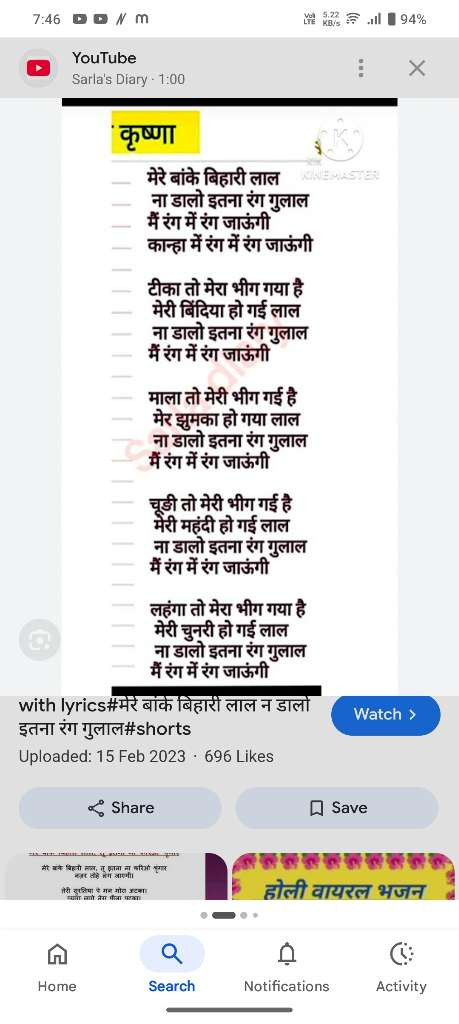 7:46
Vo) LTE 5.22 KB/s 94%
YouTube
Sarla's Diary · 1:00
कृष्णा
KINEMASTER
मेरे बांके बिहारी लाल
ना डालो इतना रंग गुलाल
मैं रंग में रंग जाऊंगी
कान्हा में रंग में रंग जाऊंगी
टीका तो मेरा भीग गया है
मेरी बिंदिया हो गई लाल
ना डालो इतना रंग गुलाल
मैं रंग में रंग जाऊंगी
माला तो मेरी भीग गई है
मेर झुमका हो गया लाल
ना डालो इतना रंग गुलाल
मैं रंग में रंग जाऊंगी
चूङी तो मेरी भीग गई है
मेरी महंदी हो गई लाल
ना डालो इतना रंग गुलाल
मैं रंग में रंग जाऊंगी
लहंगा तो मेरा भीग गया है
मेरी चुनरी हो गई लाल
ना डालो इतना रंग गुलाल
मैं रंग में रंग जाऊंगी
Sarla diary
with lyrics#मेरे बांके बिहारी लाल न डालो
इतना रंग गुलाल#shorts
Watch >
Uploaded: 15 Feb 2023 · 696 Likes
Share
Save
मेरे बांके बिहारी लाल, तू इतना ना करिओ श्रृंगार
नज़र तोहे लग जाएगी।
तेरी सुरतिया पे मन मोरा अटका।
होली वायरल भजन
Home
Search
Notifications
Activity